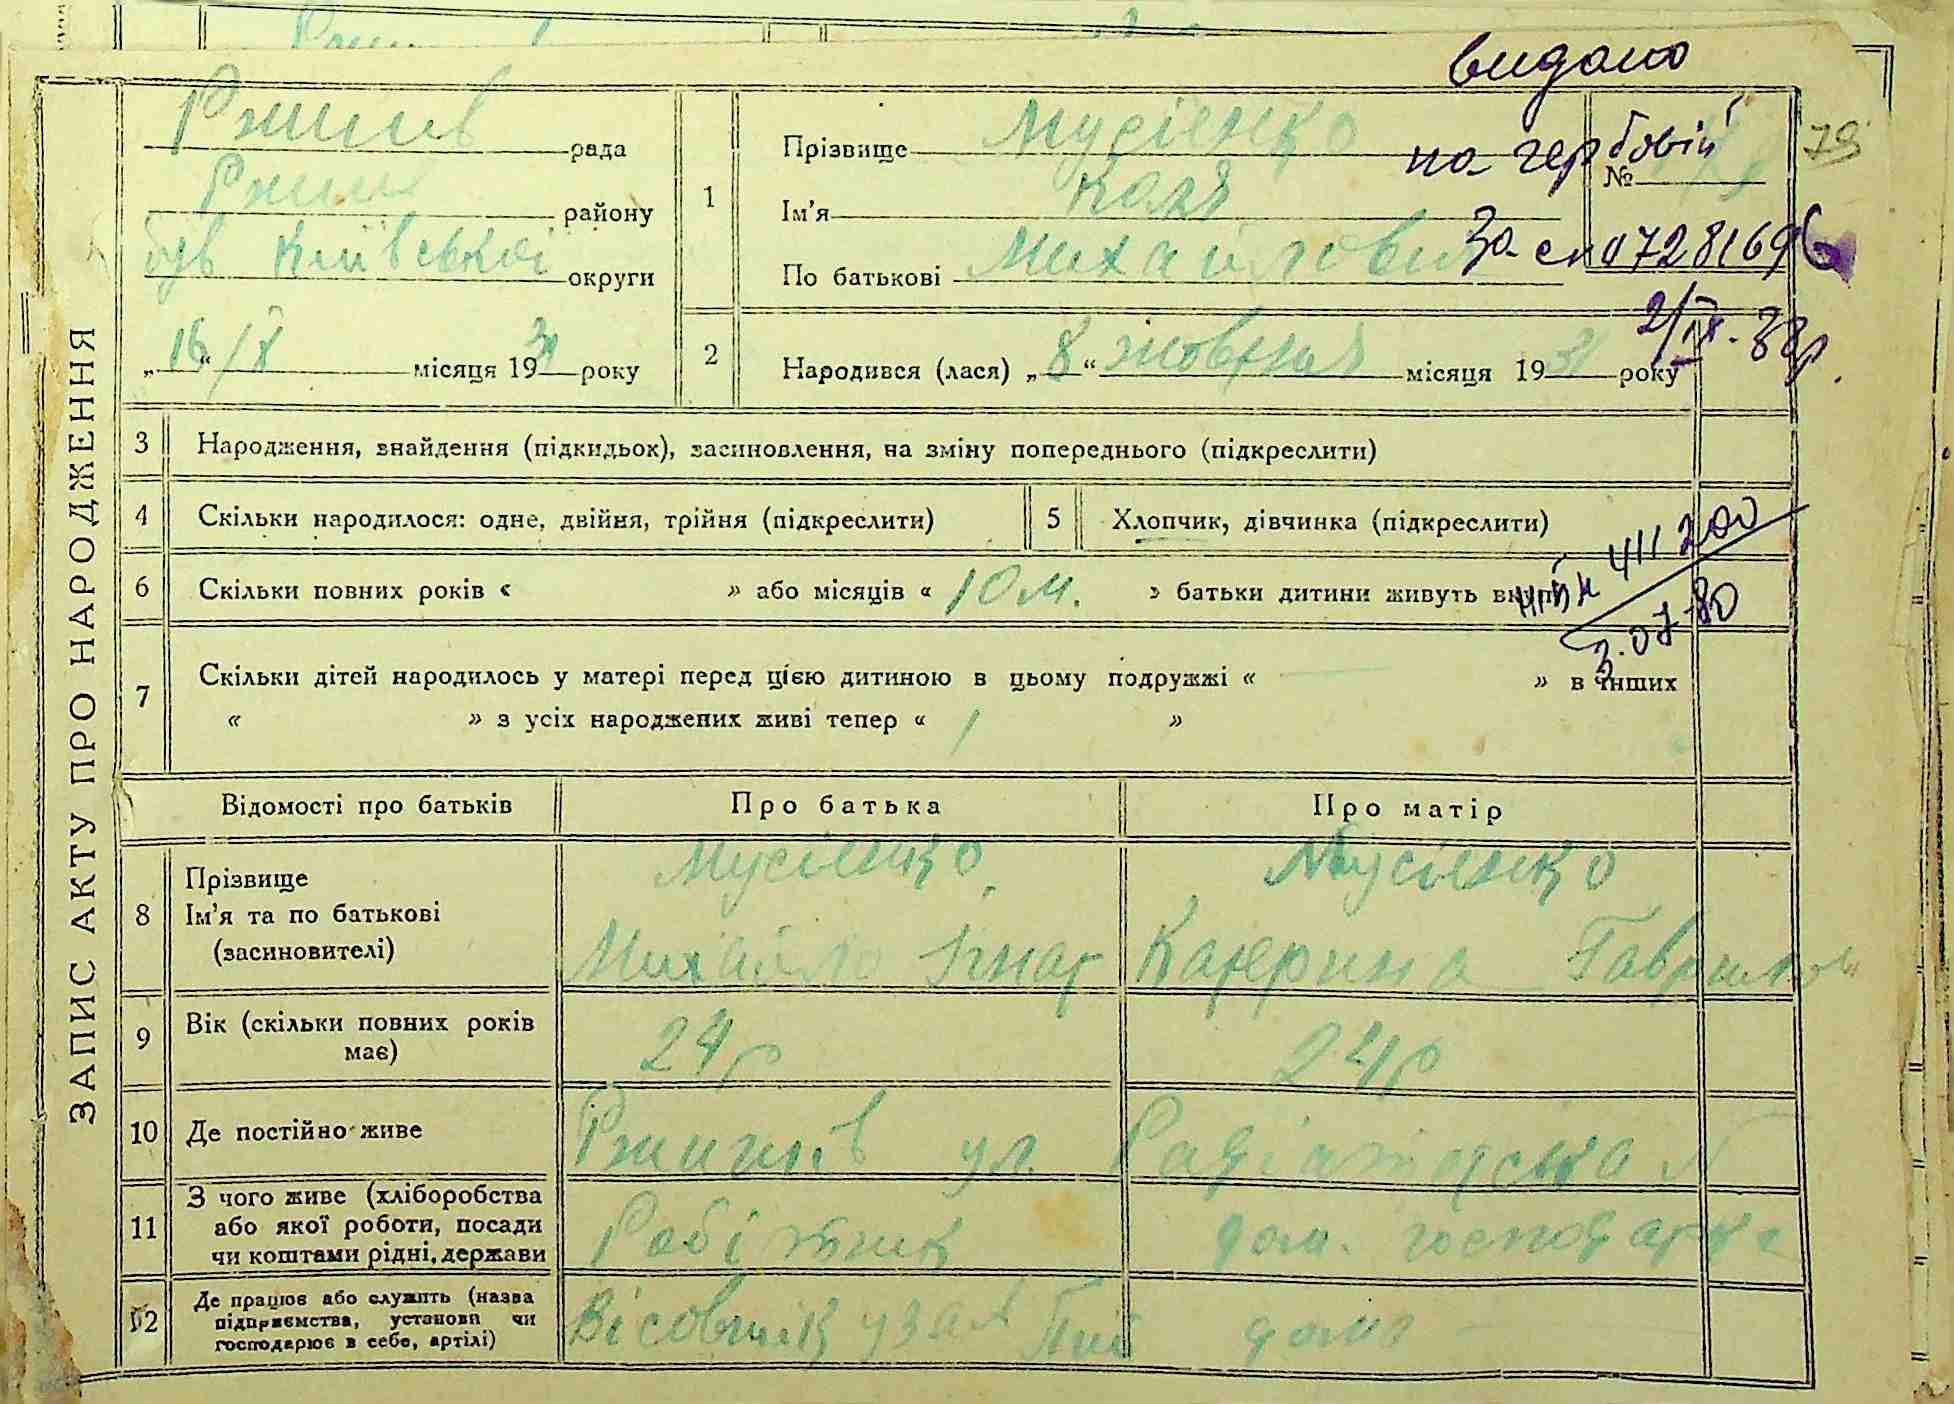 видано
Ржищів рада
Ржищ району
був Київської округи
„16“/X місяця 1931 року
1 Прізвище Мусієнко
на гербовій
№
79
Ім’я Коля
По батькові Михайлович
За с 7281696
2/IX-38р.
2 Народився (лася) „8“ жовтня місяця 1931 року
ЗАПИС АКТУ ПРО НАРОДЖЕННЯ
3 Народження, знайдення (підкидьок), засиновлення, на зміну попереднього (підкреслити)
4 Скільки народилося: одне, двійня, трійня (підкреслити)
5 Хлопчик, дівчинка (підкреслити)
411200
3.07.80
6 Скільки повних років « » або місяців « 10 м. » батьки дитини живуть вкупі
7 Скільки дітей народилось у матері перед цією дитиною в цьому подружжі « — » в інших
« » з усіх народжених живі тепер « 1 »
Відомості про батьків Про батька Про матір
8 Прізвище
Ім’я та по батькові
(засиновителі)
Мусієнко
Михайло Ігнат
Мусієнко
Катерина Гаврилов
9 Вік (скільки повних років
має)
24р
24р
10 Де постійно живе
Ржищів ул. Радіаторська
11 З чого живе (хліборобства
або якої роботи, посади
чи коштами рідні, держави
Робітник
дом. господарка
12 Де працює або служить (назва
підприємства, установи чи
господарює в себе, артілі)
Вісовщик
дома